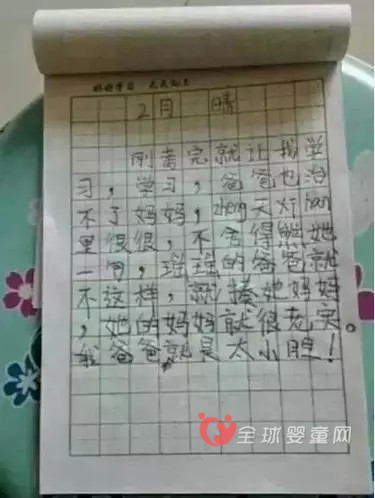 好好学习 天天向上
2月 晴
刚考完就让我学
习，学习，爸爸也治
不了妈妈，zheng天灯han
里很很，不舍得熊她
一句，瑶瑶的爸爸就
不这样，就揍她妈妈
，她的妈妈就很老实。
我爸爸，就是太小胆！
全球婴童网